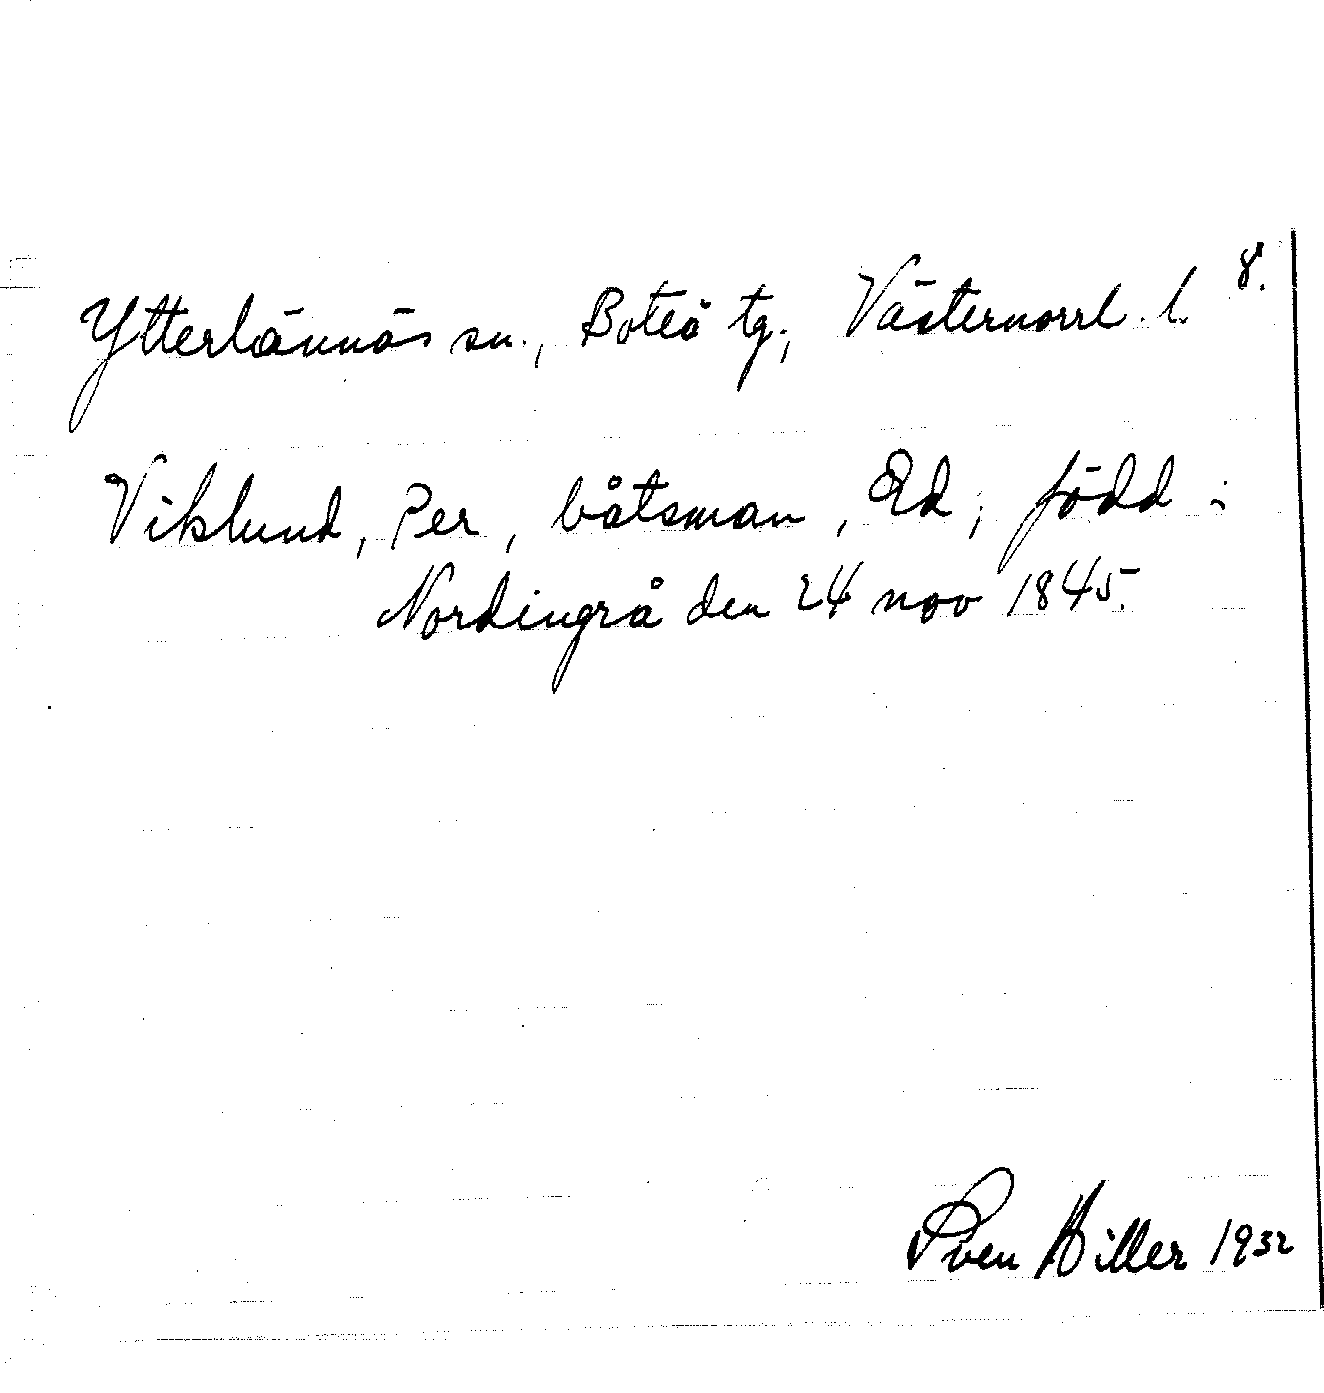 8.
Ytterlännäs sn., Boteå tg., Västernorrl. l.
Viklund, Per, båtsman, Ed, född i
Nordingrå den 24 nov 1845.
Sven Hiller 1932